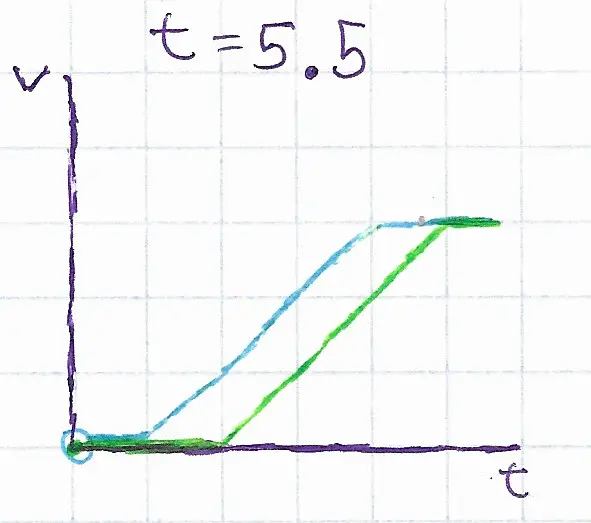 t = 5.5
v
t